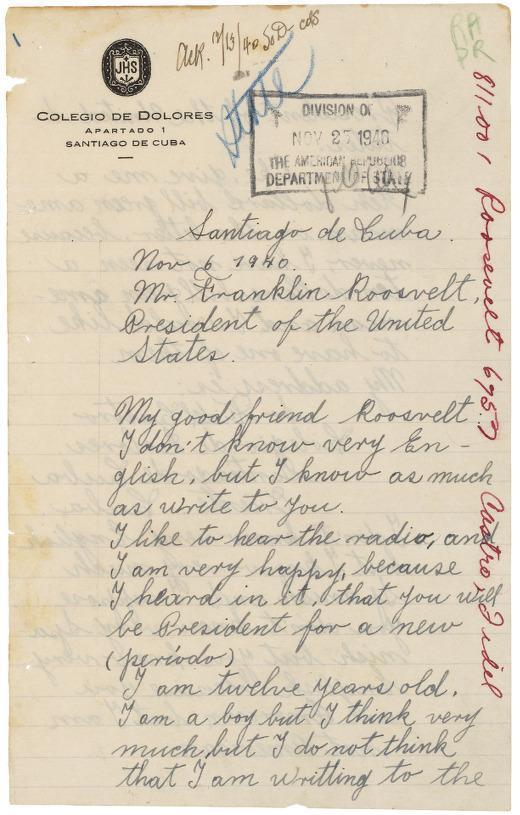 Ack. 12/13/40 SoD cds
State
RA
DR
JHS
COLEGIO DE DOLORES
APARTADO 1
SANTIAGO DE CUBA
DIVISION OF
NOV 25 1940
THE AMERICAN REPUBLICS
DEPARTMENT OF STATE
Santiago de Cuba.
Nov 6 1940.
Mr. Franklin Roosvelt,
President of the United
States.
My good friend Roosvelt:
I don't know very En-
glish, but I know as much
as write to you.
I like to hear the radio, and
I am very happy, because
I heard in it, that you will
be President for a new
(período)
I am twelve years old.
I am a boy but I think very
much, but I do not think
that I am writting to the
811.001 Roosevelt
Castro, Fidel